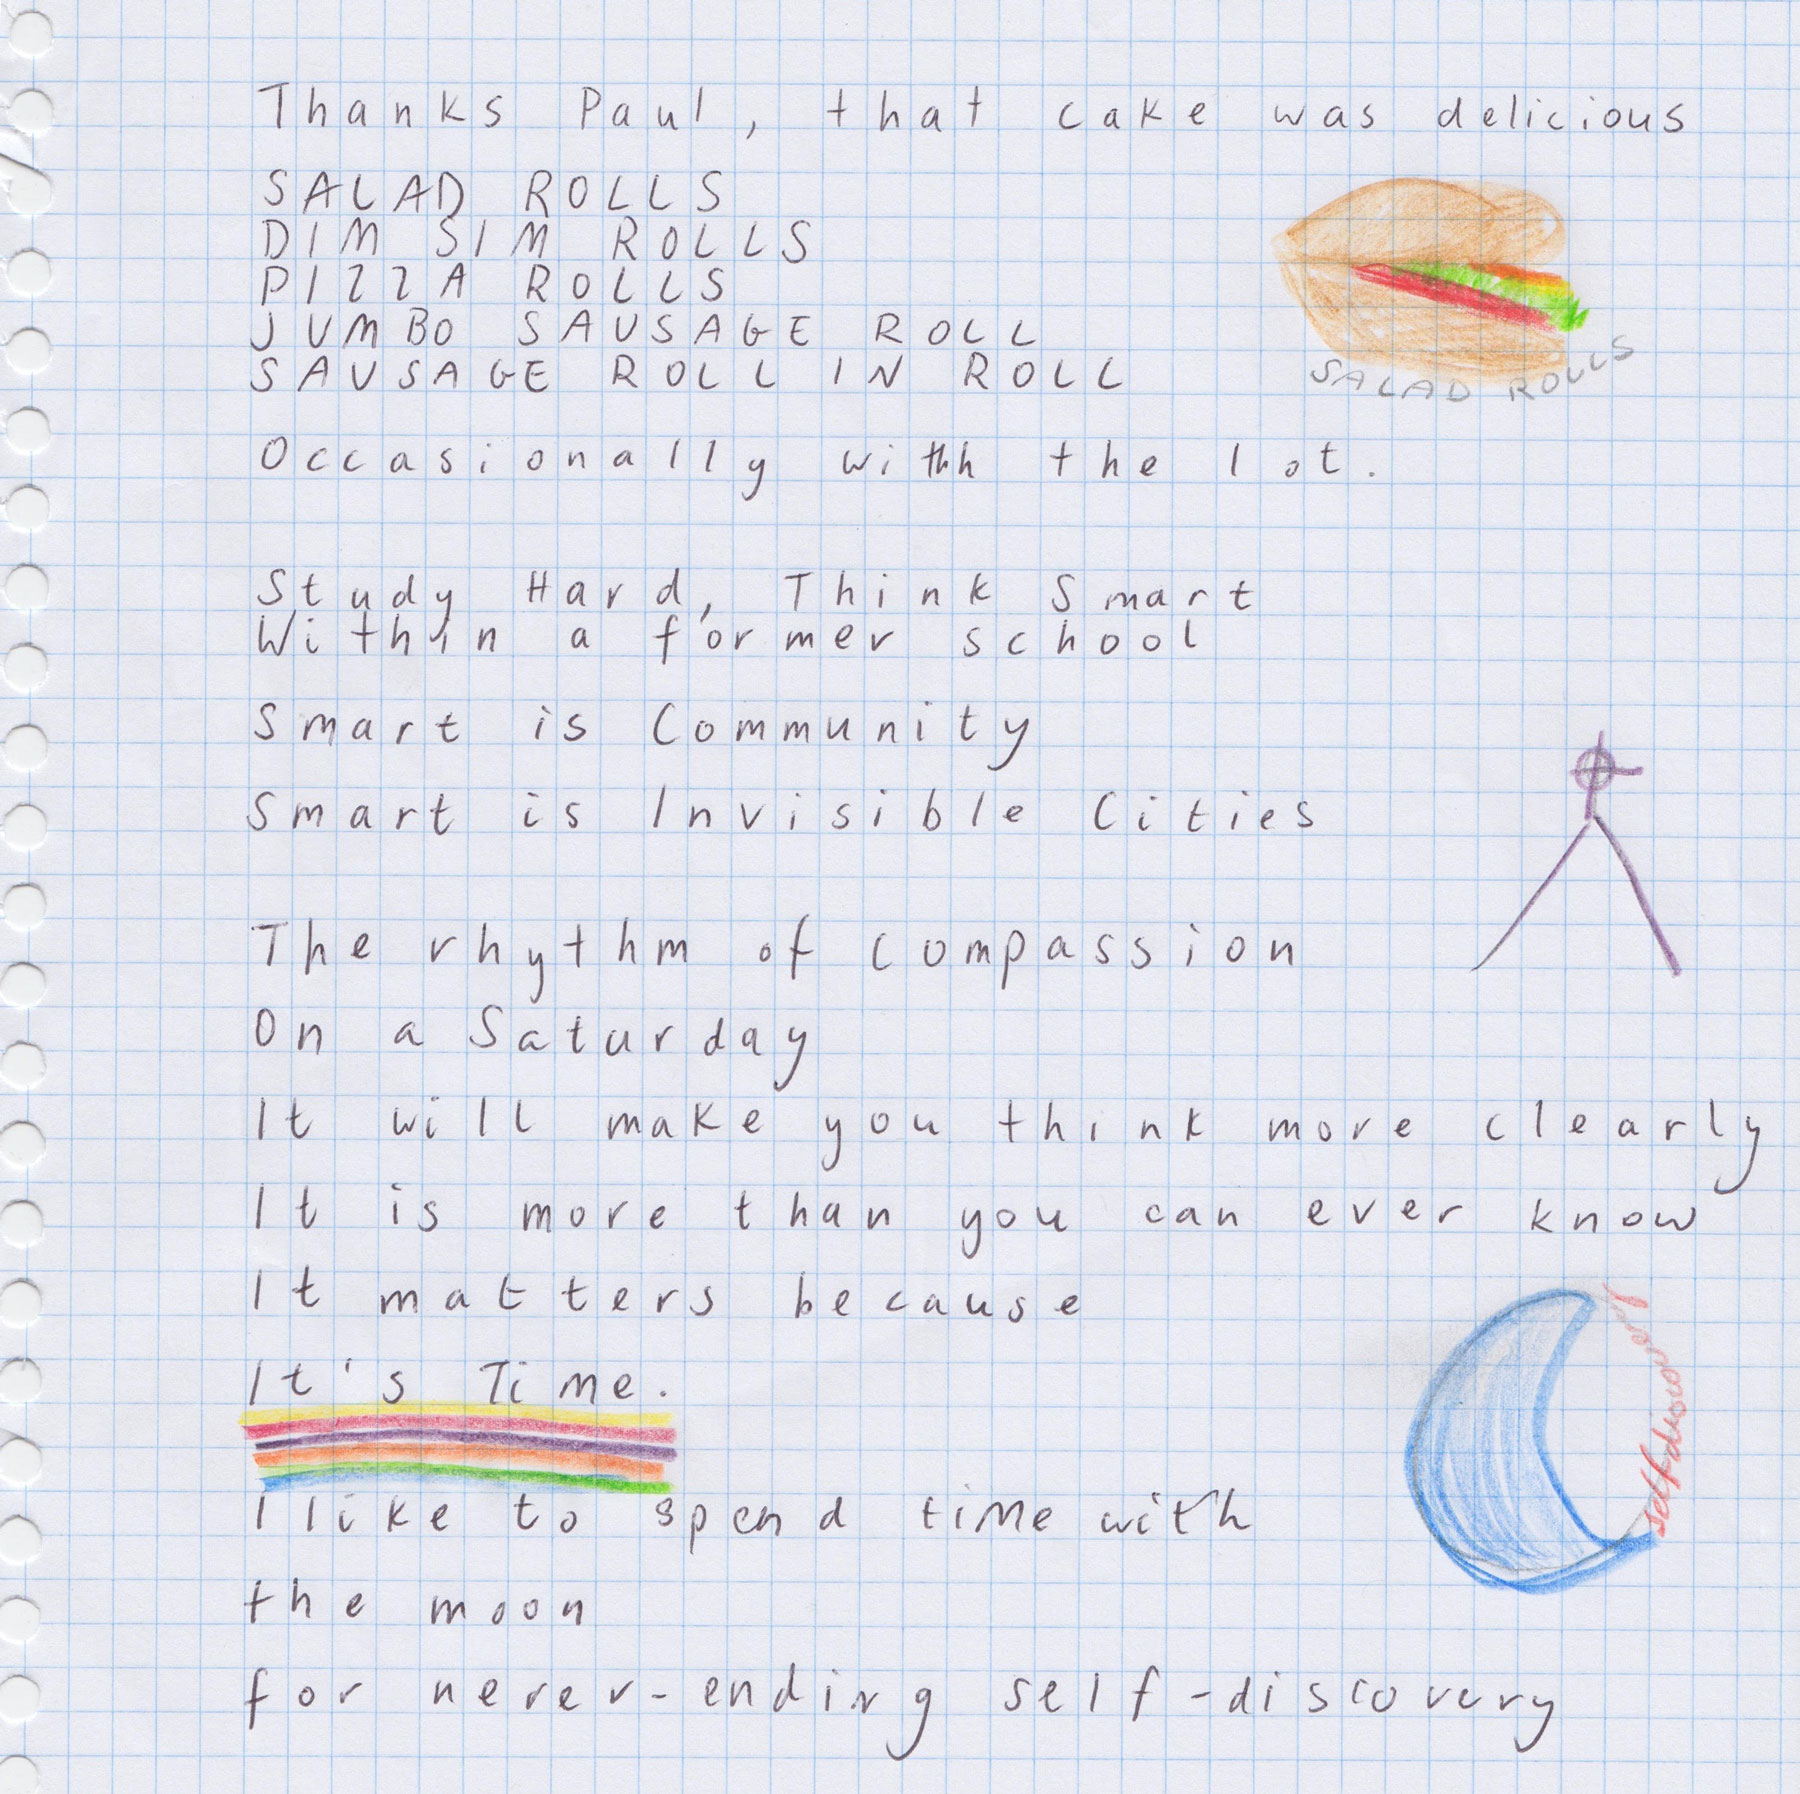 Thanks Paul, that cake was delicious
SALAD ROLLS
DIM SIM ROLLS
PIZZA ROLLS
JUMBO SAUSAGE ROLL
SAUSAGE ROLL IN ROLL
SALAD ROLLS
Occasionally with the lot.
Study Hard, Think Smart
Within a former school
Smart is Community
Smart is Invisible Cities
The rhythm of compassion
On a Saturday
It will make you think more clearly
It is more than you can ever know
It matters because
It's Time.
I like to spend time with
the moon
for never-ending self-discovery
selfdiscovery